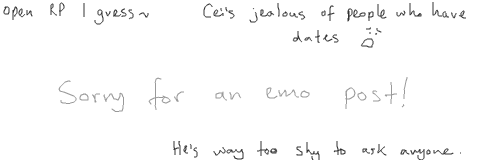 open RP I guess~
Cei's jealous of people who have
dates
Sorry for an emo post!
He's way too shy to ask anyone.